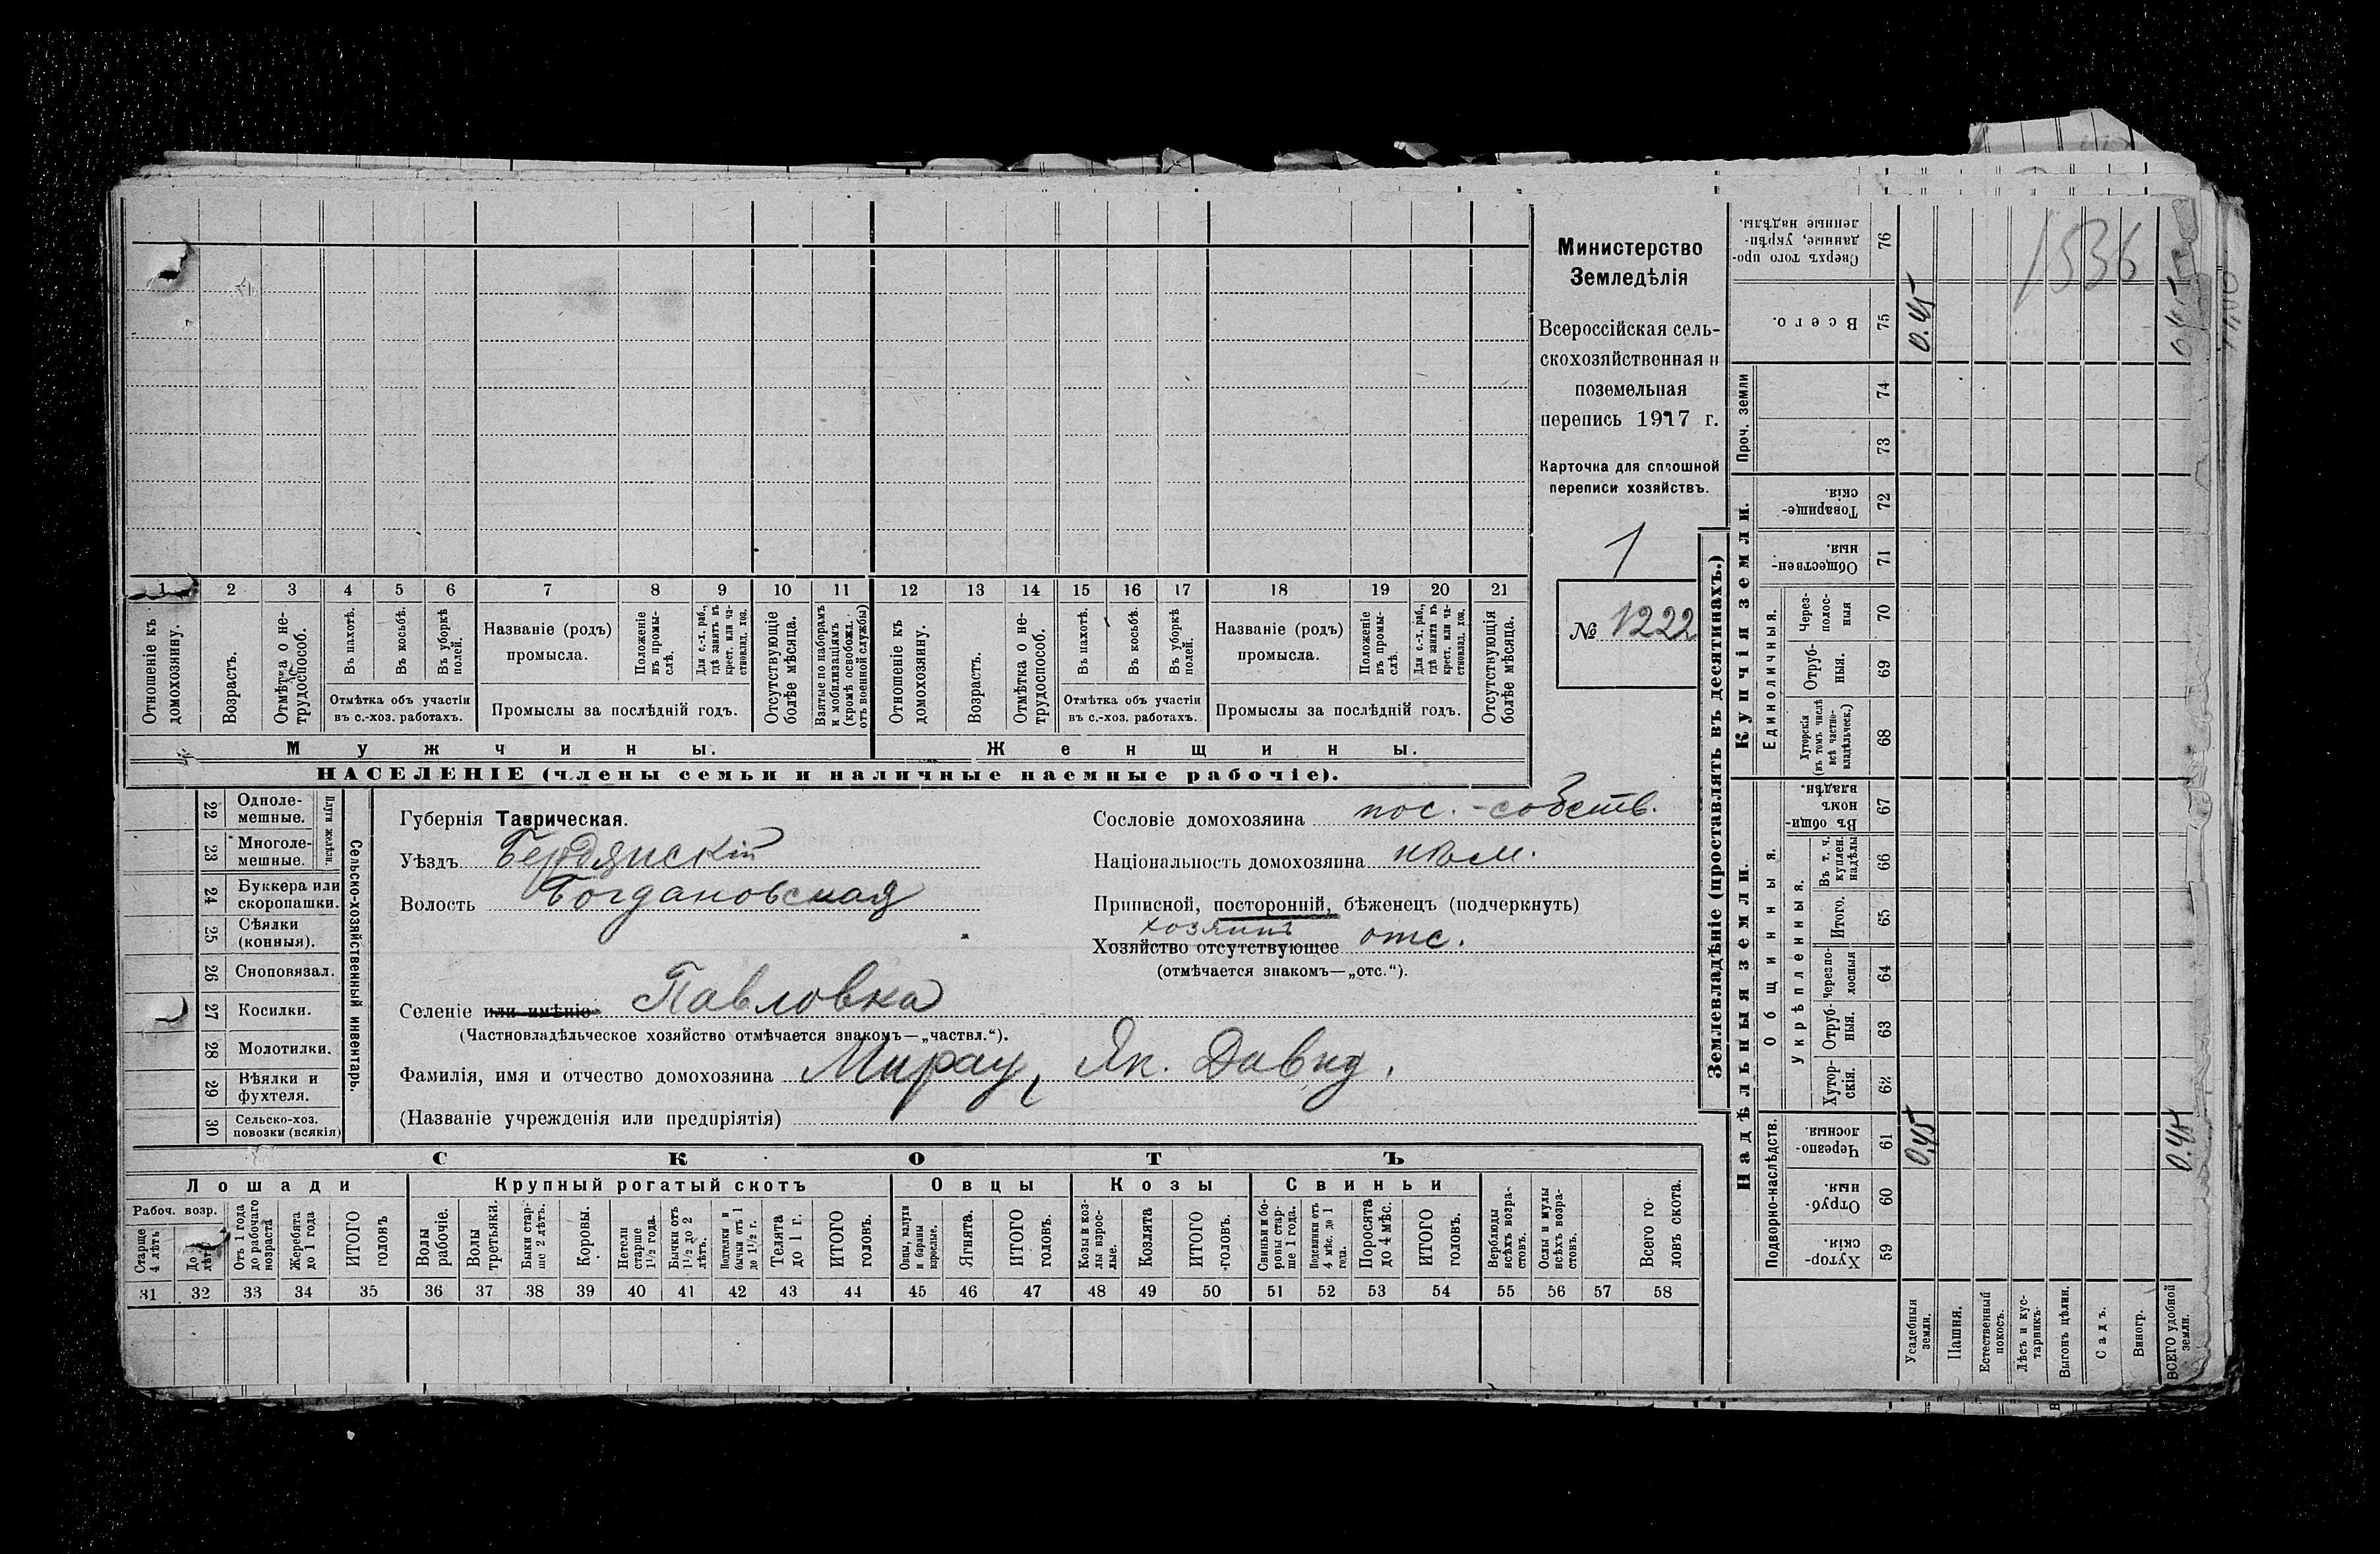 Министерство
Земледѣлія
Всероссійская сель-
скохозяйственная и
поземельная
перепись 1917 г.
Карточка для сплошной
переписи хозяйствъ.
1
№ 1222
1 2 3 4 5 6 7 8 9 10 11 12 13 14 15 16 17 18 19 20 21
Отношеніе къ домохозяину.
Возрастъ.
Отмѣтка о не-трудоспособ.
Въ пахотѣ.
Въ косьбѣ.
Въ уборкѣ полей.
Отмѣтка объ участіи
въ с.-хоз. работахъ.
Названіе (родъ)
промысла.
Положеніе въ промы-слѣ.
Для с.-х. раб., гдѣ занятъ въ крест. или ча-стновлад. хоз.
Промыслы за послѣдній годъ.
Отсутствующіе болѣе мѣсяца.
Взятые по наборамъ и мобилизаціямъ (кромѣ освобожд. отъ военной службы)
Отношеніе къ домохозяину.
Возрастъ.
Отмѣтка о не-трудоспособ.
Въ пахотѣ.
Въ косьбѣ.
Въ уборкѣ полей.
Отмѣтка объ участіи
въ с.-хоз. работахъ.
Названіе (родъ)
промысла.
Положеніе въ промы-слѣ.
Для с.-х. раб., гдѣ занята въ крест. или ча-стновлад. хоз.
Промыслы за послѣдній годъ.
Отсутствующія болѣе мѣсяца.
Мужчины. Женщины.
НАСЕЛЕНІЕ (члены семьи и наличные наемные рабочіе).
22 Одноле-мешные.
23 Многоле-мешные.
Плуги желѣзн.
24 Буккера или скоропашки.
25 Сѣялки (конныя).
26 Сноповязал.
27 Косилки.
28 Молотилки.
29 Вѣялки и фухтеля.
30 Сельско-хоз. повозки (всякія)
Сельско-хозяйственный инвентарь.
Губернія Таврическая.
Уѣздъ Бердянскій
Волость Богдановская
Селеніе или имѣніе Павловка
(Частновладѣльческое хозяйство отмѣчается знакомъ—„частвл.“).
Фамилія, имя и отчество домохозяина Мирау, Як. Давид.
(Названіе учрежденія или предпріятія)
Сословіе домохозяина пос.-собств.
Національность домохозяина нѣм.
Приписной, посторонній, бѣженецъ (подчеркнуть)
хозяинъ
Хозяйство отсутствующее отс.
(отмѣчается знакомъ—„отс.“).
СКОТЪ
Лошади Крупный рогатый скотъ Овцы Козы Свиньи
Рабоч. возр.
Старше 4 лѣтъ
До лѣтъ
Отъ 1 года до рабочаго возраста
Жеребята до 1 года
ИТОГО головъ
Волы рабочіе.
Волы третьяки.
Быки стар-ше 2 лѣтъ.
Коровы.
Нетели старше 1½ года.
Бычки отъ 1½ до 2 лѣтъ.
Подтелки и бычки отъ 1 до 1½ г.
Телята до 1 г.
ИТОГО головъ.
Овцы, валухи и бараны взрослые.
Ягнята.
ИТОГО головъ.
Козы и коз-лы взрос-лые.
Козлята
ИТОГО головъ.
Свиньи и бо-ровы стар-ше 1 года.
Подсвинки отъ 4 мѣс. до 1 года.
Поросята до 4 мѣс.
ИТОГО головъ.
Верблюды всѣхъ возра-стовъ.
Ослы и мулы всѣхъ возра-стовъ.
Всего го-ловъ скота.
31 32 33 34 35 36 37 38 39 40 41 42 43 44 45 46 47 48 49 50 51 52 53 54 55 56 57 58
Землевладѣніе (проставлять въ десятинахъ.)
Надѣльныя земли. Купчія земли.
Проч. земли
Подворно-наслѣдств.
Общинныя.
Укрѣпленныя.
Единоличныя.
Сверхъ того про-данные, укрѣп-ленные надѣлы. 76
Всего. 75
74
73
Товарище-скія. 72
Обществен-ныя. 71
Через-полос-ныя 70
Отруб-ныя. 69
Хуторскія (въ томъ числѣ всѣ частно-владѣльческ.) 68
Въ общин-номъ владѣн. 67
Въ т. ч. куплен. надѣлы 66
Итого. 65
Черезпо-лосныя 64
Отруб-ныя. 63
Хутор-скія. 62
Черезпо-лосныя 61
Отруб-ныя. 60
Хутор-скія 59
Усадебныя земли. 0,45 0.45
Пашня.
Естественный покосъ.
Лѣсъ и кус-тарникъ.
Выгонъ цѣлин.
Садъ.
Виногр.
ВСЕГО удобной земли. 0.45 0.45
1536